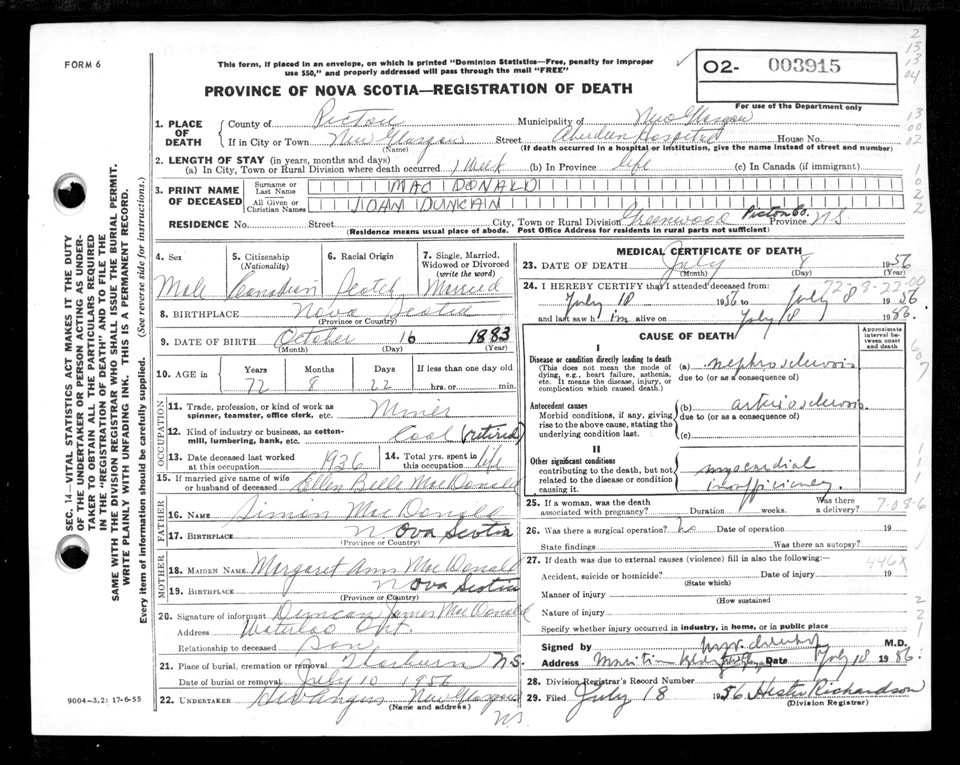 FORM 6
This form, if placed in an envelope, on which is printed "Dominion Statistics—Free, penalty for improper
use $50," and properly addressed will pass through the mail "FREE"
O2- 003915
For use of the Department only
PROVINCE OF NOVA SCOTIA—REGISTRATION OF DEATH
2
13
13
04
13
00
02
1. PLACE OF DEATH
County of Pictou Municipality of New Glasgow
If in City or Town New Glasgow Street Aberdeen Hospital House No.
(Name) (If death occurred in a hospital or institution, give the name instead of street and number)
2. LENGTH OF STAY (in years, months and days)
(a) In City, Town or Rural Division where death occurred 1 Week (b) In Province life (c) In Canada (if immigrant)
3. PRINT NAME OF DECEASED
Surname or Last Name MAC DONALD
All Given or Christian Names DUNCAN
RESIDENCE No. Street City, Town or Rural Division Greenwood Pictou Co. Province N S
(Residence means usual place of abode. Post Office Address for residents in rural parts not sufficient)
SEC. 14—VITAL STATISTICS ACT MAKES IT THE DUTY
OF THE UNDERTAKER OR PERSON ACTING AS UNDER-
TAKER TO OBTAIN ALL THE PARTICULARS REQUIRED
IN THE "REGISTRATION OF DEATH" AND TO FILE THE
SAME WITH THE DIVISION REGISTRAR WHO SHALL ISSUE THE BURIAL PERMIT.
WRITE PLAINLY WITH UNFADING INK. THIS IS A PERMANENT RECORD.
Every item of information should be carefully supplied. (See reverse side for instructions.)
4. Sex Male
5. Citizenship (Nationality) Canadian
6. Racial Origin Scotch
7. Single, Married, Widowed or Divorced (write the word) Married
8. BIRTHPLACE Nova Scotia
(Province or Country)
9. DATE OF BIRTH October 16 1883
(Month) (Day) (Year)
10. AGE in Years Months Days If less than one day old
72 8 22 hrs. or min.
OCCUPATION
11. Trade, profession, or kind of work as spinner, teamster, office clerk, etc. Miner
12. Kind of industry or business, as cotton-mill, lumbering, bank, etc. Coal (retired)
13. Date deceased last worked at this occupation 1936
14. Total yrs. spent in this occupation life
15. If married give name of wife or husband of deceased Ellen Belle MacDonald
FATHER
16. NAME Simon MacDonald
17. BIRTHPLACE NOVA Scotia
(Province or Country)
MOTHER
18. MAIDEN NAME Margaret Ann MacDonald
19. BIRTHPLACE NOVA Scotia
(Province or Country)
20. Signature of informant Duncan James MacDonald
Address Waterloo Ont.
Relationship to deceased Son
21. Place of burial, cremation or removal Thorburn N.S.
Date of burial or removal July 10 1956
22. UNDERTAKER New Glasgow
(Name and address)
N.S.
9004—3.2: 17-6-55
MEDICAL CERTIFICATE OF DEATH
23. DATE OF DEATH July 8 1956
(Month) (Day) (Year)
24. I HEREBY CERTIFY that I attended deceased from:
72-8-22-00
July 18 1956 to July 8 1956
and last saw him alive on July 8 1956.
CAUSE OF DEATH
Approximate interval between onset and death
I
Disease or condition directly leading to death
(This does not mean the mode of dying, e.g., heart failure, asthenia, etc. It means the disease, injury, or complication which caused death.)
(a) nephrosclerosis
due to (or as a consequence of)
Antecedent causes
Morbid conditions, if any, giving rise to the above cause, stating the underlying condition last.
(b) arteriosclerosis
due to (or as a consequence of)
(c)
II
Other significant conditions
contributing to the death, but not related to the disease or condition causing it.
myocardial
insufficiency.
25. If a woman, was the death associated with pregnancy? Duration weeks. Was there a delivery?
7-08-6
26. Was there a surgical operation? no Date of operation 19
State findings Was there an autopsy?
27. If death was due to external causes (violence) fill in also the following:—
446X
Accident, suicide or homicide? Date of injury 19
(State which)
Manner of injury
(How sustained
Nature of injury
Specify whether injury occurred in industry, in home, or in public place
Signed by M.D.
Address Date July 18 1956.
28. Division Registrar's Record Number
29. Filed July 18 1956 Hester Richardson
(Division Registrar)